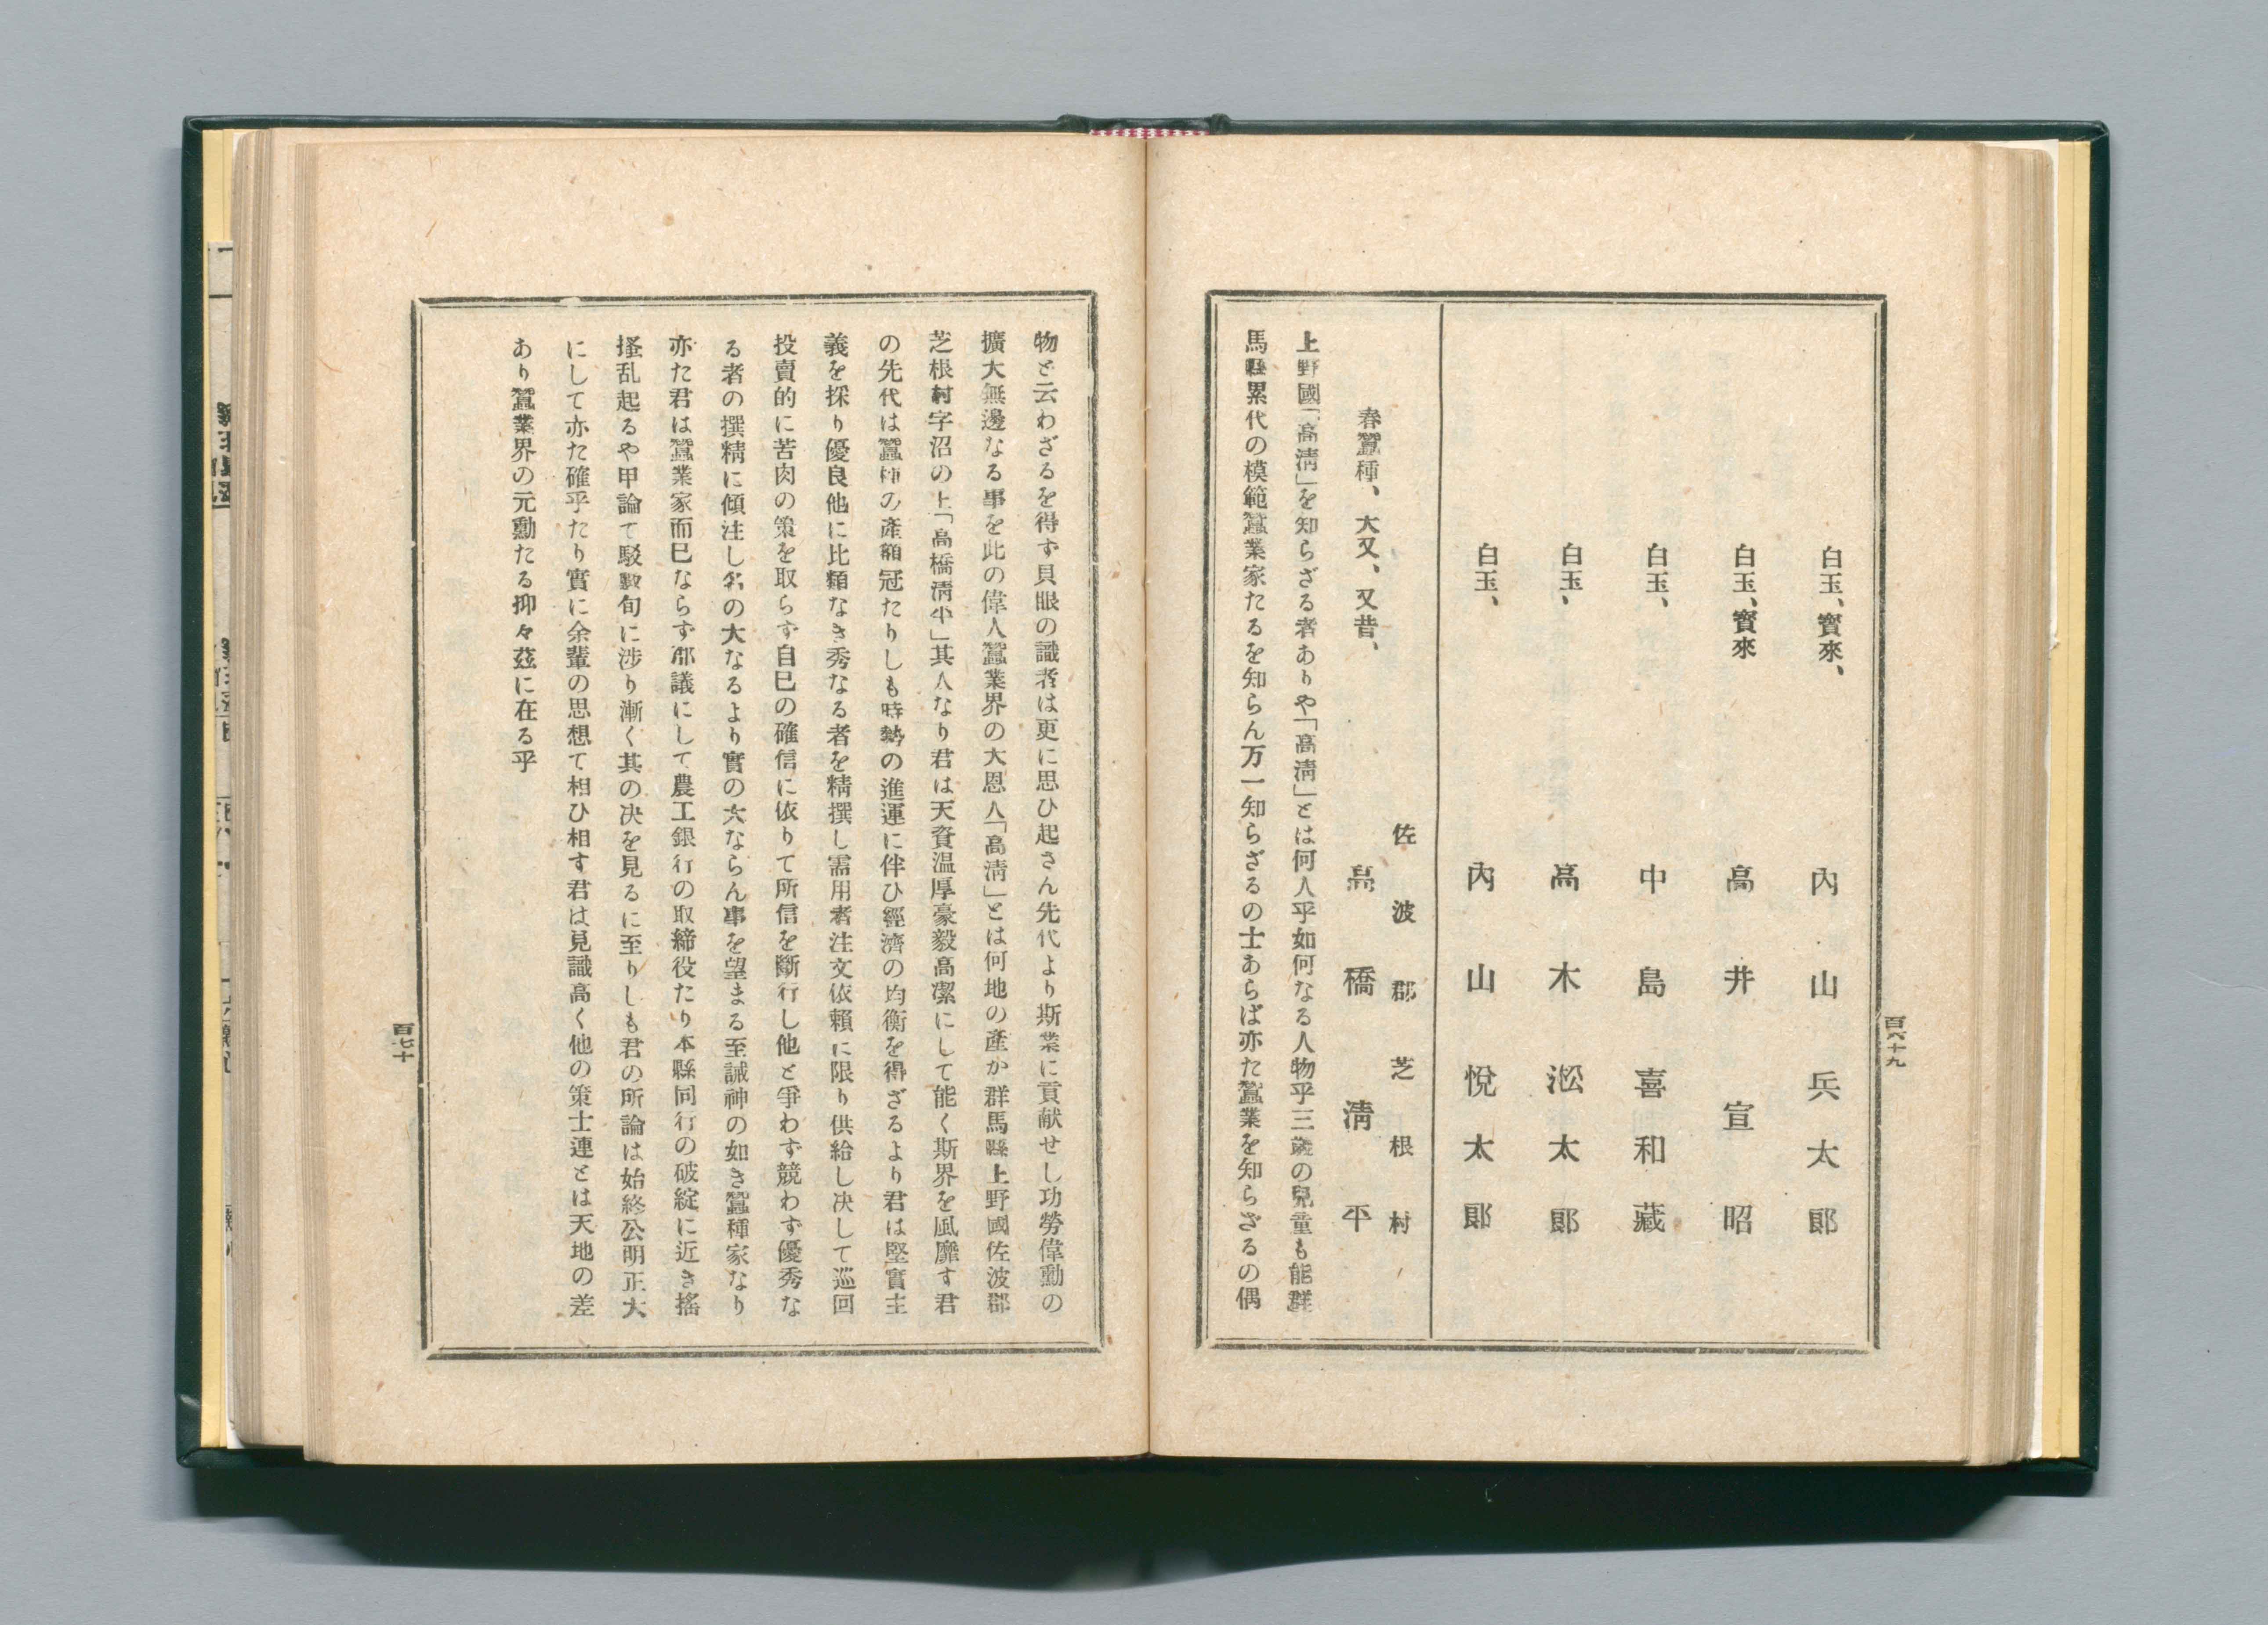 百六十九
白玉、寳來、　內山兵太郎
白玉、寳來　高井宣昭
白玉、　中島喜和藏
白玉、　高木淞太郎
白玉、　內山悅太郎
佐波郡芝根村
春蠶種、大又、又昔、　高橋淸平
上野國「高淸」を知らざる者ありや「高淸」とは何人乎如何なる人物乎三歲の兒童も能群
馬縣累代の模範蠶業家たるを知らん万一知らざるの士あらば亦た蠶業を知らざるの偶
物と云わざるを得ず具眼の識者は更に思ひ起さん先代より斯業に貢献せし功勞偉勳の
擴大無邊なる事を此の偉人蠶業界の大恩人「高淸」とは何地の產か群馬縣上野國佐波郡
芝根村字沼の上「高橋淸平」其人なり君は天資温厚豪毅高潔にして能く斯界を風靡す君
の先代は蠶種の產額冠たりしも時勢の進運に伴ひ經濟の均衡を得ざるより君は堅實主
義を採り優良他に比類なき秀なる者を精撰し需用者注文依賴に限り供給し决して巡回
投賣的に苦肉の策を取らず自巳の確信に依りて所信を斷行し他と爭わず競わず優秀な
る者の撰精に傾注し名の大なるより實の大ならん事を望まる至誠神の如き蠶種家なり
亦た君は蠶業家而巳ならず郡議にして農工銀行の取締役たり本縣同行の破綻に近き搖
搔乱起るや甲論て駁數旬に涉り漸く其の决を見るに至りしも君の所論は始終公明正大
にして亦た確乎たり實に余輩の思想て相ひ相す君は見識高く他の策士連とは天地の差
あり蠶業界の元勳たる抑々玆に在る乎
百七十